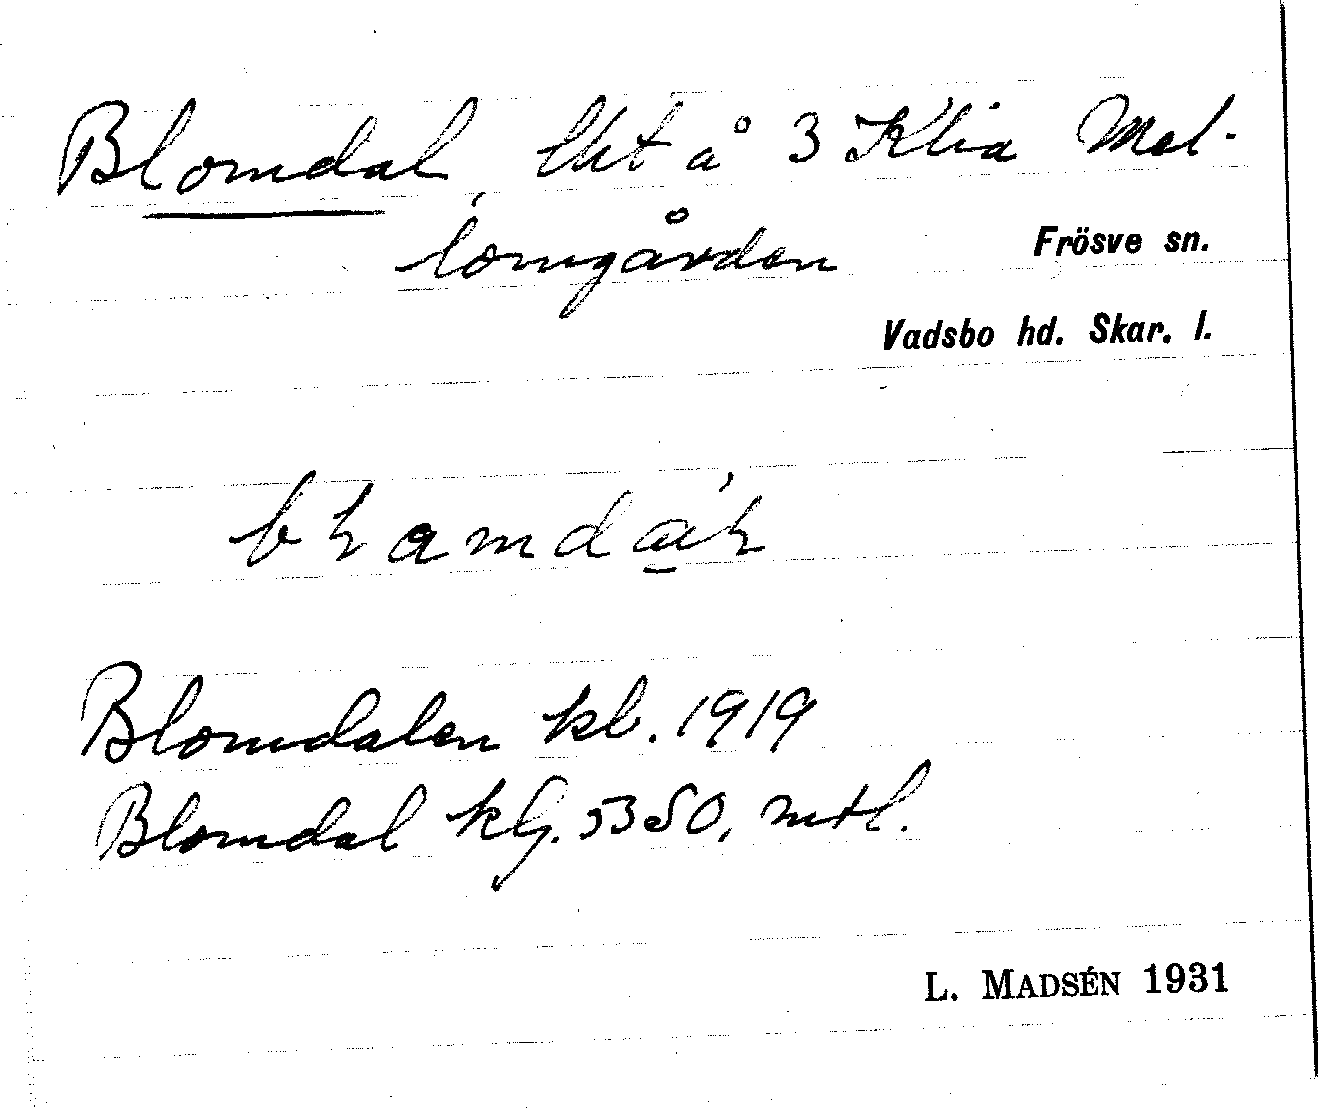 Blomdal, lht å 3 Klia Mel-
lomgården
Frösve sn.
Vadsbo hd. Skar. l.
Blomdalen kl. 1919
Blomdal klg. 5350, mtl.
L. MADSÉN 1931